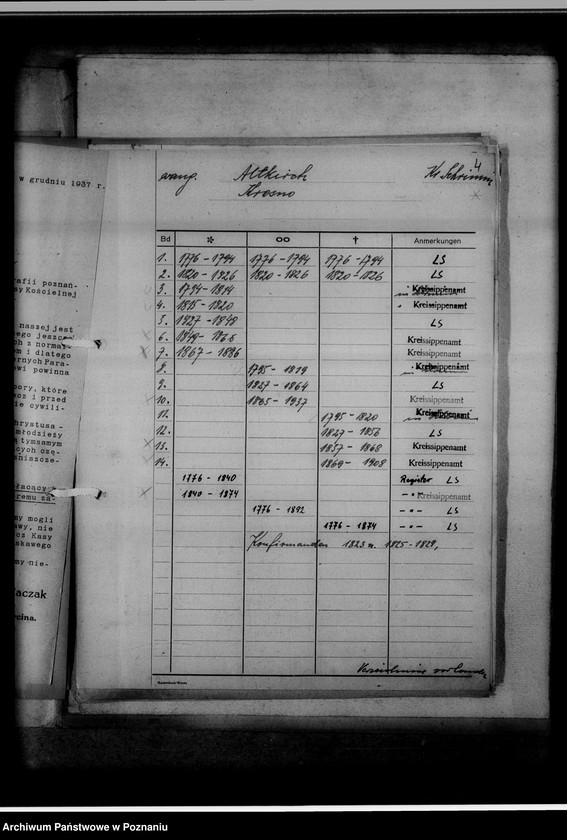 w grudniu 1937 r.
rafii poznań-
sy Kościelnej
naszej jest
ego jeszcze
ch z norma-
m i dlatego
ernych Para-
ewi powinna
pory, które
ecz i przed
ie cywili-
hrystusa -
młodzieży
ą tymsamym
cych czę-
aniszcze-
łącący
remu za-
my mogli
awy, nie
oz Kasy
skawego
my nie-
aczak
cina.
4
evang. Altkirch Kr Schrimm
Krosno
Bd * ∞ † Anmerkungen
1. 1776 - 1794 1776 - 1794 1776 - 1794 LS
2. 1820 - 1826 1820 - 1826 1820 - 1826 LS
3. 1794 - 1814 Kreissippenamt
4. 1815 - 1820 Kreissippenamt
5. 1827 - 1848 LS
6. 1849 - 1866 Kreissippenamt
7. 1867 - 1886 Kreissippenamt
8. 1795 - 1819 Kreissippenamt
9. 1827 - 1864 LS
10. 1865 - 1937 Kreissippenamt
11. 1795 - 1820 Kreissippenamt
12. 1827 - 1856 LS
13. 1857 - 1868 Kreissippenamt
14. 1869 - 1908 Kreissippenamt
1776 - 1840 Register LS
1840 - 1874 - " - Kreissippenamt
1776 - 1892 - " - LS
1776 - 1874 - " - LS
Konfirmanden 1823 u. 1825 - 1829,
Verzeichnis vorhanden
Archiwum Państwowe w Poznaniu